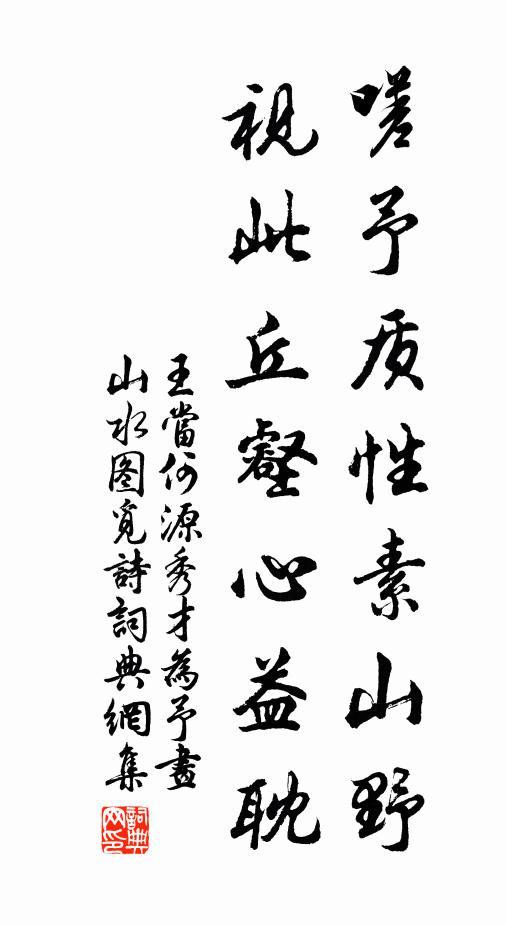 嗟予质性素山野
视此丘壑心益耽
王當何源秀才為予畫
山水图覓詩詞典網集
詞典
网印